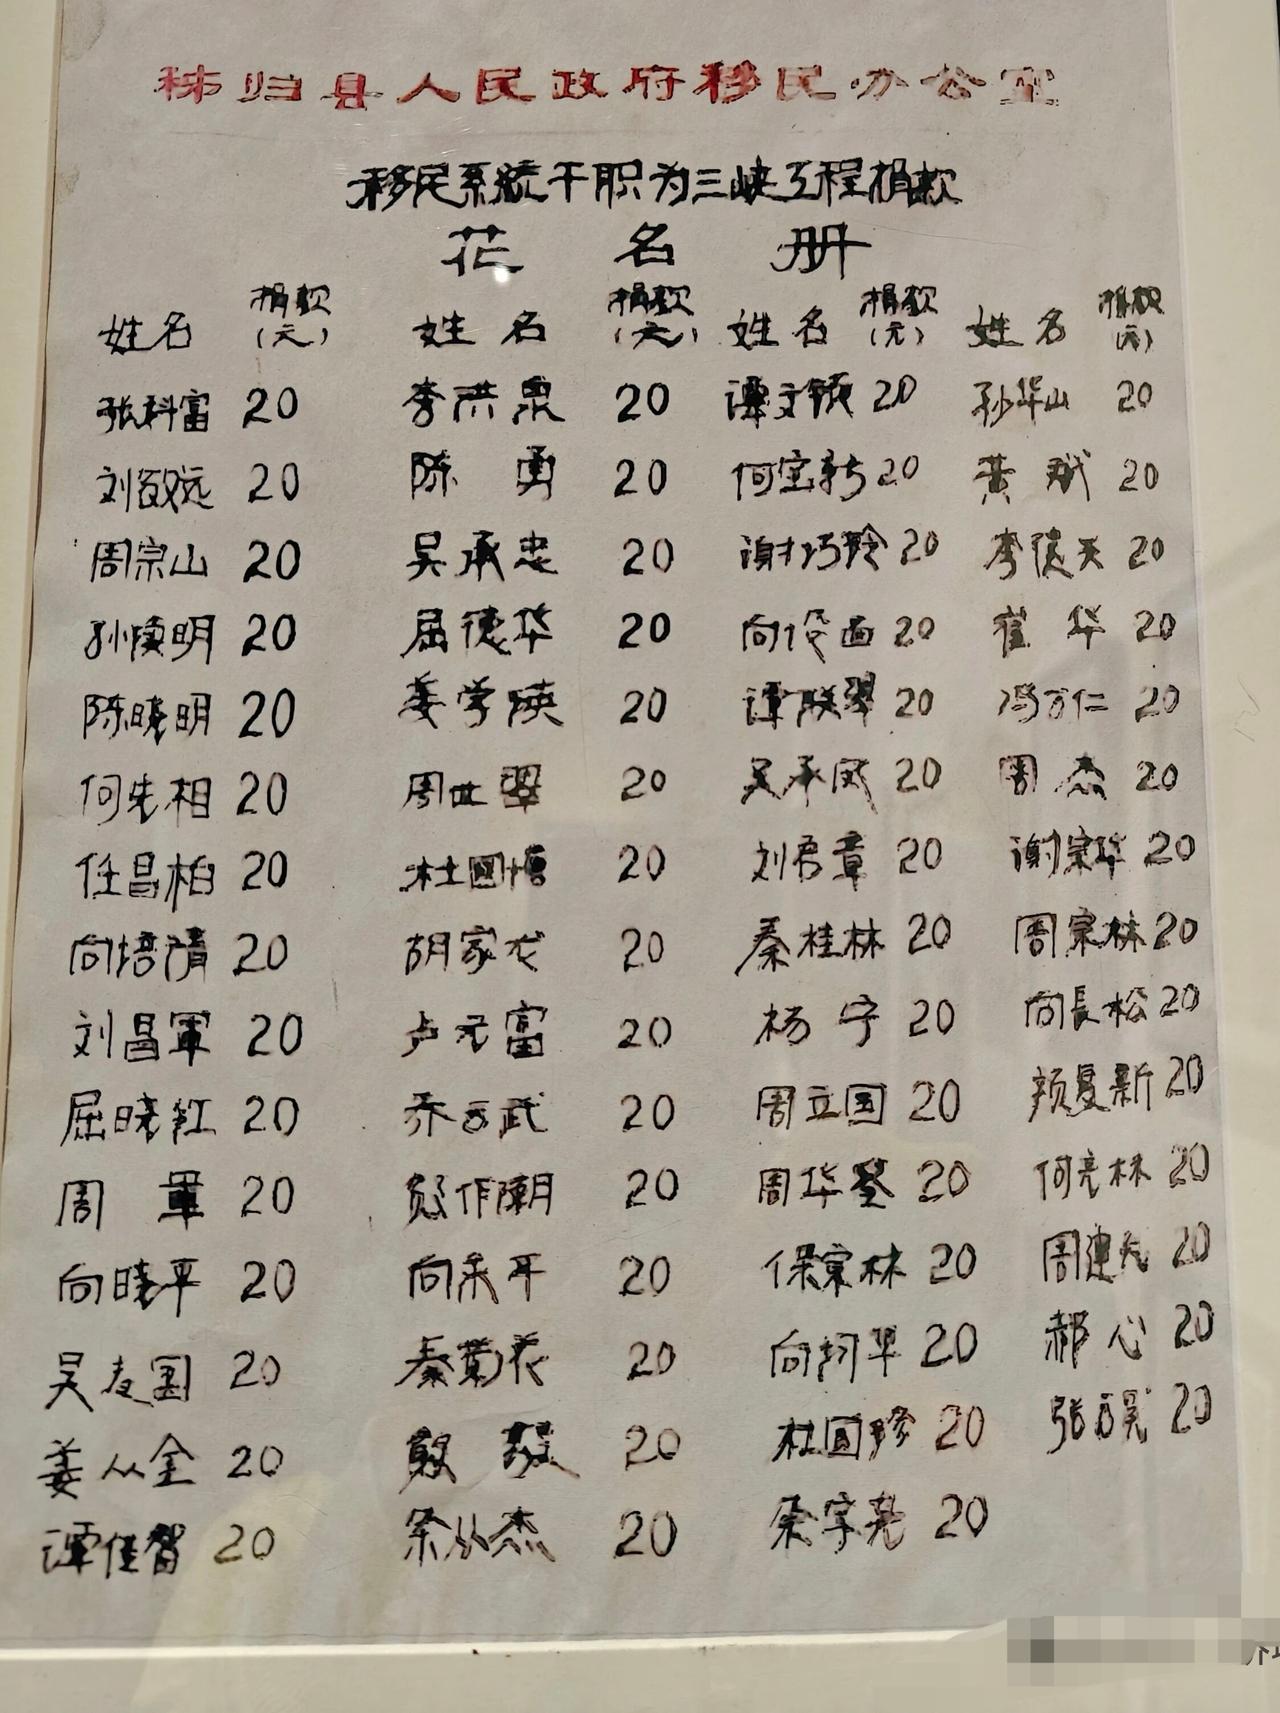 秭归县人民政府移民办公室
移民系统干职为三峡工程捐款
花名册
姓名 捐款(元) 姓名 捐款(元) 姓名 捐款(元) 姓名 捐款(元)
张科富 20 李洪泉 20 谭文镇 20 孙华山 20
刘敦远 20 陈勇 20 何宝新 20 黄斌 20
周宗山 20 吴承忠 20 谢巧玲 20 李德天 20
孙陵明 20 屈德华 20 向 20 崔华 20
陈晓明 20 姜学 20 谭联翠 20 冯万仁 20
何先相 20 周世翠 20 吴承凤 20 周杰 20
任昌柏 20 杜国 20 刘君章 20 谢宗华 20
向培清 20 胡家龙 20 秦桂林 20 周宗林 20
刘昌軍 20 卢元富 20 杨宁 20 向長松 20
屈晓红 20 乔云武 20 周立国 20 颜复新 20
周軍 20 作潮 20 周华登 20 何亮林 20
向晓平 20 向 20 宗林 20 周建 20
吴友国 20 秦菊 20 向 华 20 郝心 20
姜从全 20 20 杜国珍 20 张 20
谭佳智 20 余从杰 20 余宗亮 20